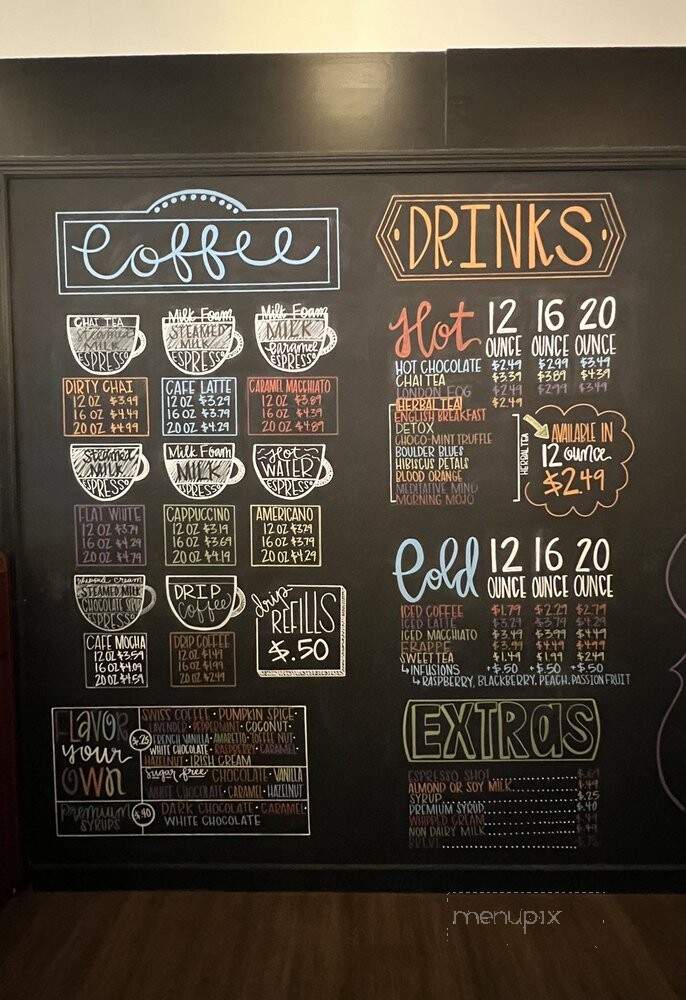 Coffee
CHAI TEA
ESPRESSO
DIRTY CHAI
12 OZ $3.99
16 OZ $4.49
20 OZ $4.99
Milk Foam
STEAMED
MILK
ESPRESSO
CAFE LATTE
12 OZ $3.29
16 OZ $3.79
20 OZ $4.29
Milk Foam
MILK
caramel
ESPRESSO
CARAMEL MACCHIATO
12 OZ $3.89
16 OZ $4.39
20 OZ $4.89
Steamed
MILK
ESPRESSO
FLAT WHITE
12 OZ $3.79
16 OZ $4.29
20 OZ $4.79
Milk Foam
MILK
ESPRESSO
CAPPUCCINO
12 OZ $3.19
16 OZ $3.69
20 OZ $4.19
Hot
WATER
ESPRESSO
AMERICANO
12 OZ $3.29
16 OZ $3.79
20 OZ $4.29
whipped cream
STEAMED MILK
CHOCOLATE SYRUP
ESPRESSO
CAFE MOCHA
12 OZ $3.59
16 OZ $4.09
20 OZ $4.59
DRIP
coffee
DRIP COFFEE
12 OZ $1.49
16 OZ $1.99
20 OZ $2.49
drip
REFILLS
$.50
FLAVOR
your
OWN
$.25
SWISS COFFEE • PUMPKIN SPICE •
LAVENDER • PEPPERMINT • COCONUT •
FRENCH VANILLA • AMARETTO •
WHITE CHOCOLATE • RASPBERRY • CARAMEL •
HAZELNUT • IRISH CREAM
sugar free CHOCOLATE • VANILLA
WHITE CHOCOLATE • CARAMEL • HAZELNUT
PREMIUM
SYRUPS
$.40
DARK CHOCOLATE • CARAMEL •
WHITE CHOCOLATE
DRINKS
Hot 12 16 20
OUNCE OUNCE OUNCE
HOT CHOCOLATE $2.49 $2.99 $3.49
CHAI TEA $3.39 $3.89 $4.39
LONDON FOG $2.49 $2.99 $3.49
HERBAL TEA $2.49
ENGLISH BREAKFAST
DETOX
CHOCO-MINT TRUFFLE
BOULDER BLUES
HIBISCUS PETALS
BLOOD ORANGE
MEDITATIVE MIND
MORNING MOJO
HERBAL TEA
AVAILABLE IN
12 ounce
$2.49
Cold 12 16 20
OUNCE OUNCE OUNCE
ICED COFFEE $1.79 $2.29 $2.79
ICED LATTE $3.29 $3.79 $4.29
ICED MACCHIATO $3.49 $3.99 $4.49
FRAPPE $3.99 $4.49 $4.99
SWEET TEA $1.49 $1.99 $2.49
↳ INFUSIONS +$.50 +$.50 +$.50
↳ RASPBERRY, BLACKBERRY, PEACH, PASSION FRUIT
EXTRAS
ESPRESSO SHOT
ALMOND OR SOY MILK
SYRUP $.25
PREMIUM SYRUP $.40
WHIPPED CREAM
NON DAIRY MILK
menupix